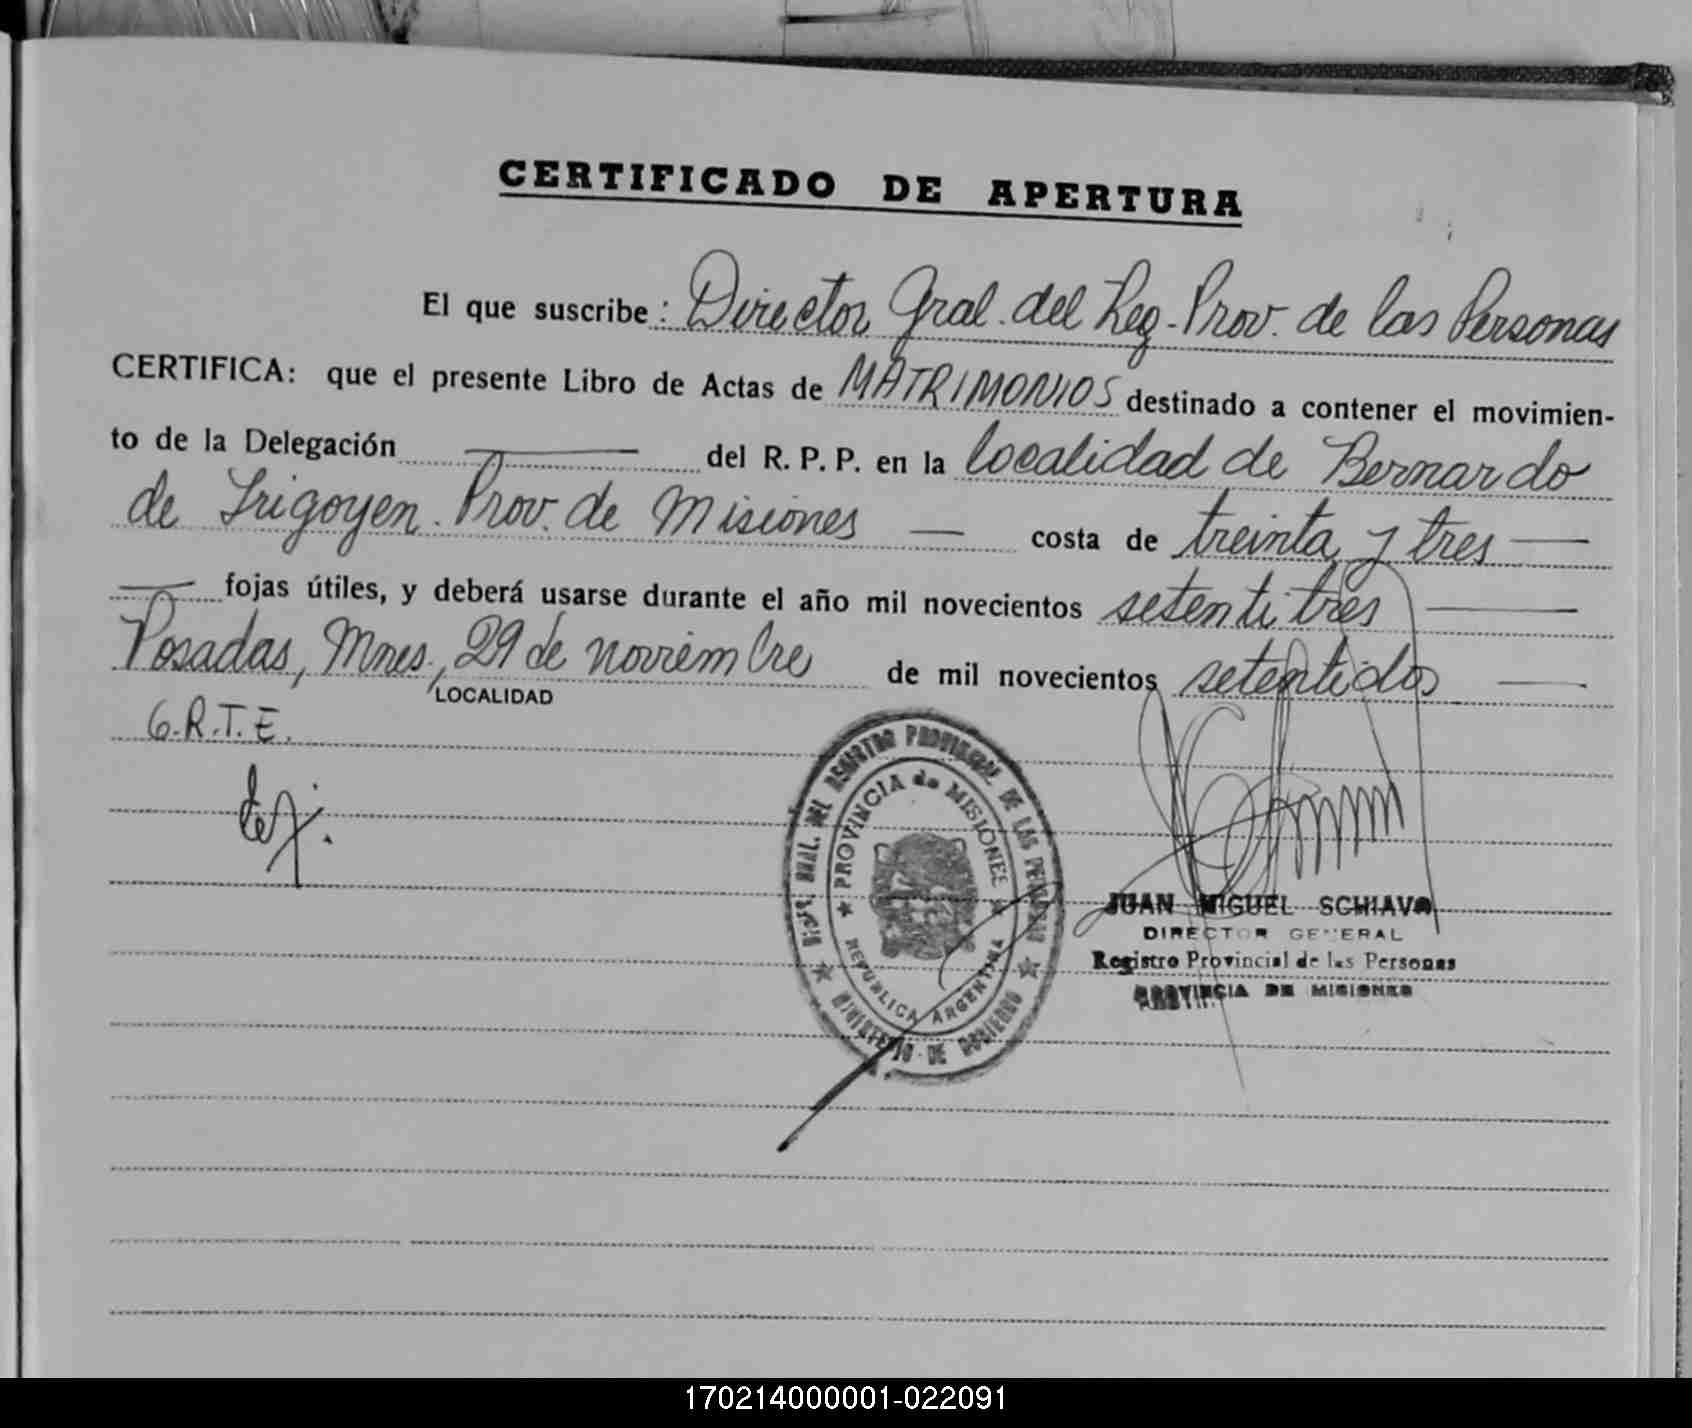 CERTIFICADO DE APERTURA
El que suscribe: Director Gral. del Reg. Prov. de las Personas
CERTIFICA: que el presente Libro de Actas de MATRIMONIOS destinado a contener el movimien-
to de la Delegación del R. P. P. en la localidad de Bernardo
de Irigoyen. Prov. de Misiones — costa de treinta y tres —
— fojas útiles, y deberá usarse durante el año mil novecientos setentitres —
Posadas, Mnes., 29 de noviembre de mil novecientos setentidos —
LOCALIDAD
G.R.T.E.
DIR. GRAL. DEL REGISTRO PROVINCIAL DE LAS PERSONAS
PROVINCIA de MISIONES
REPUBLICA ARGENTINA
MINISTERIO DE GOBIERNO
JUAN MIGUEL SCHIAVO
DIRECTOR GENERAL
Registro Provincial de las Personas
PROVINCIA DE MISIONES
170214000001-022091